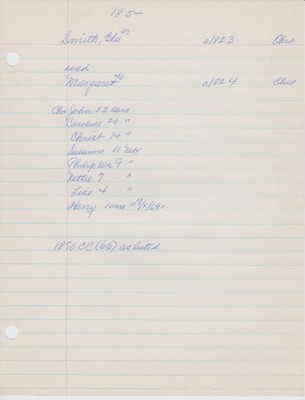 185-
Smith, Eda 47 c1823 Ohio
wed
Margaret 46 c1824 Ohio
Ch: John 22 Ohio
Caroline 20 "
Christ 14 "
Susanna 11 Nebr
Philip Wm 9 "
Nettie 7 "
Lida 4 "
Henry "
1870 CC (66) as listed